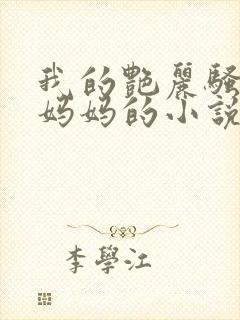 我的艷麗騷
妈妈的小說
李學江